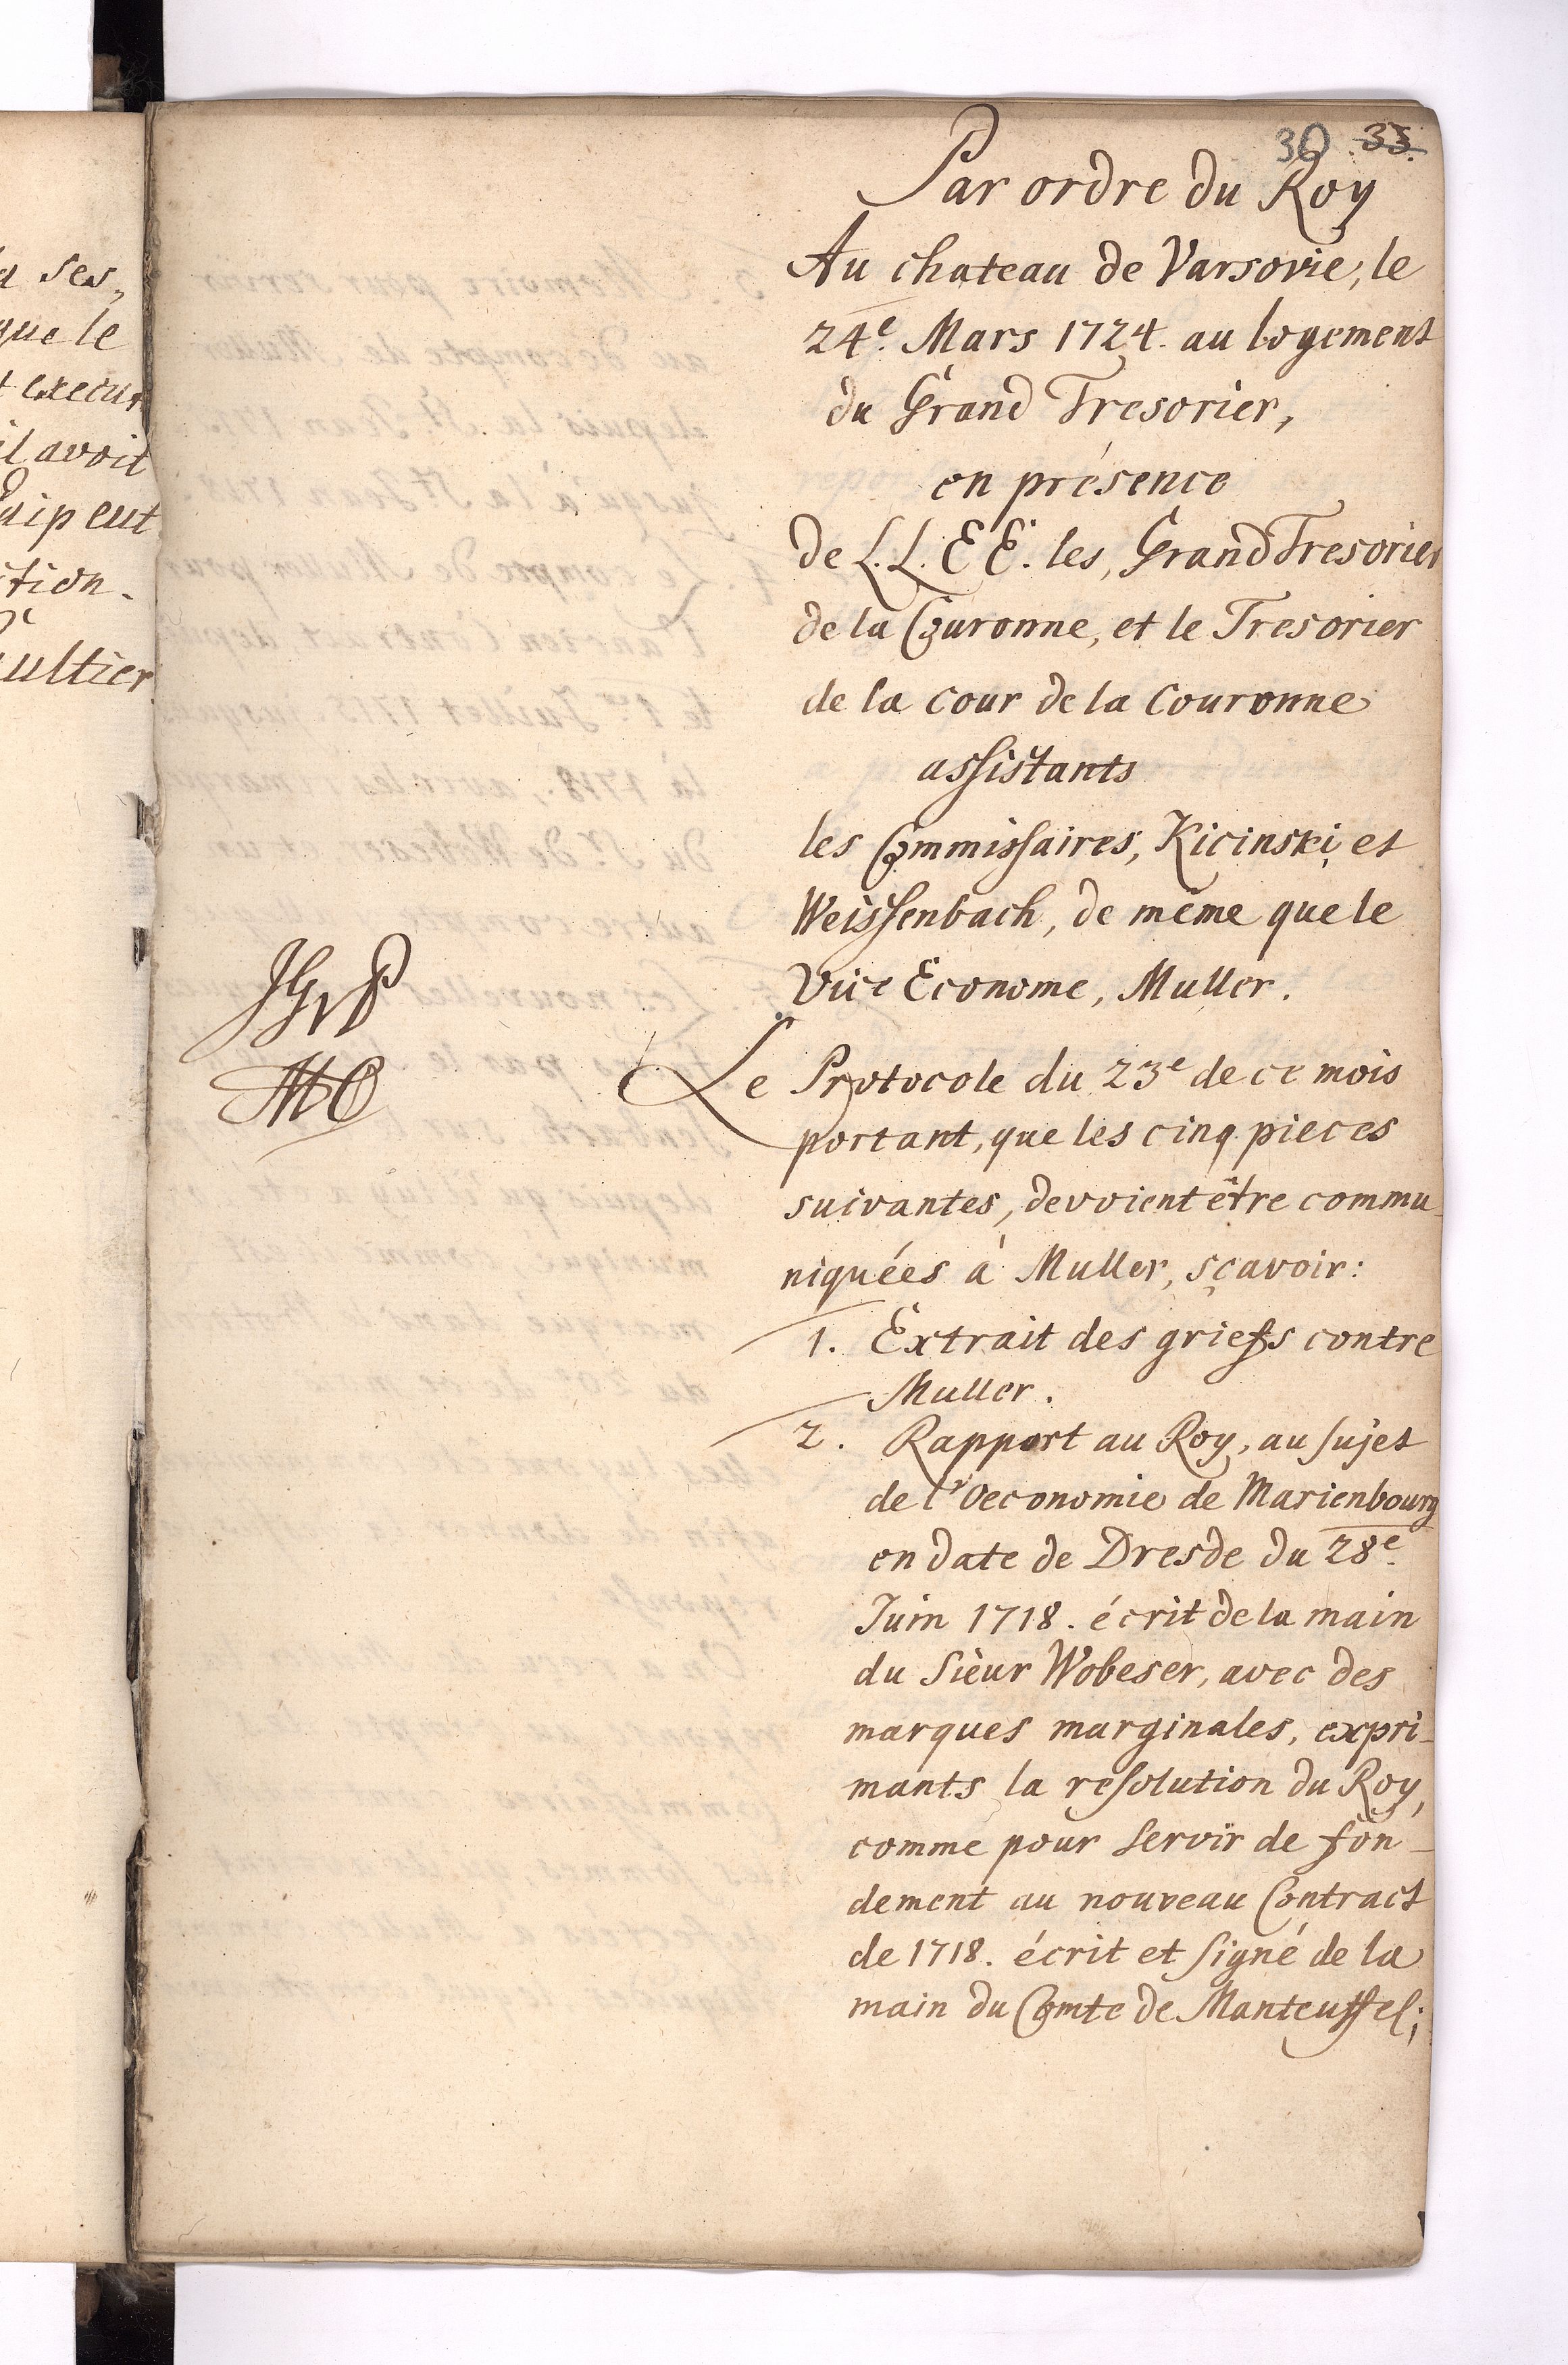 a ses,
que le
t execut
il avoit
ction.
ultier
30 33.
Par ordre du Roy
Au chateau de Varsovie, le
24e. Mars 1724. au logement
du Grand Tresorier,
en présence
de L.L.E.E. les, Grand Tresorier
de la Couronne, et le Tresorier
de la cour de la Couronne
assistants
les Commissaires, Kicinski et
Weissenbach, de même que le
Vice Econome, Muller.
Le Protocole du 23e de ce mois
portant, que les cinq pieces
suivantes, devoient être commu-
niquées à Muller, sçavoir:
1. Extrait des griefs contre
Muller.
2. Rapport au Roy, au sujet
de l'Oeconomie de Marienbourg
en date de Dresde du 28e.
Juin 1718. écrit de la main
du Sieur Wobeser, avec des
marques marginales, expri-
mants la resolution du Roy,
comme pour servir de fon-
dement au nouveau Contract
de 1718. écrit et signé de la
main du Comte de Manteuffel;